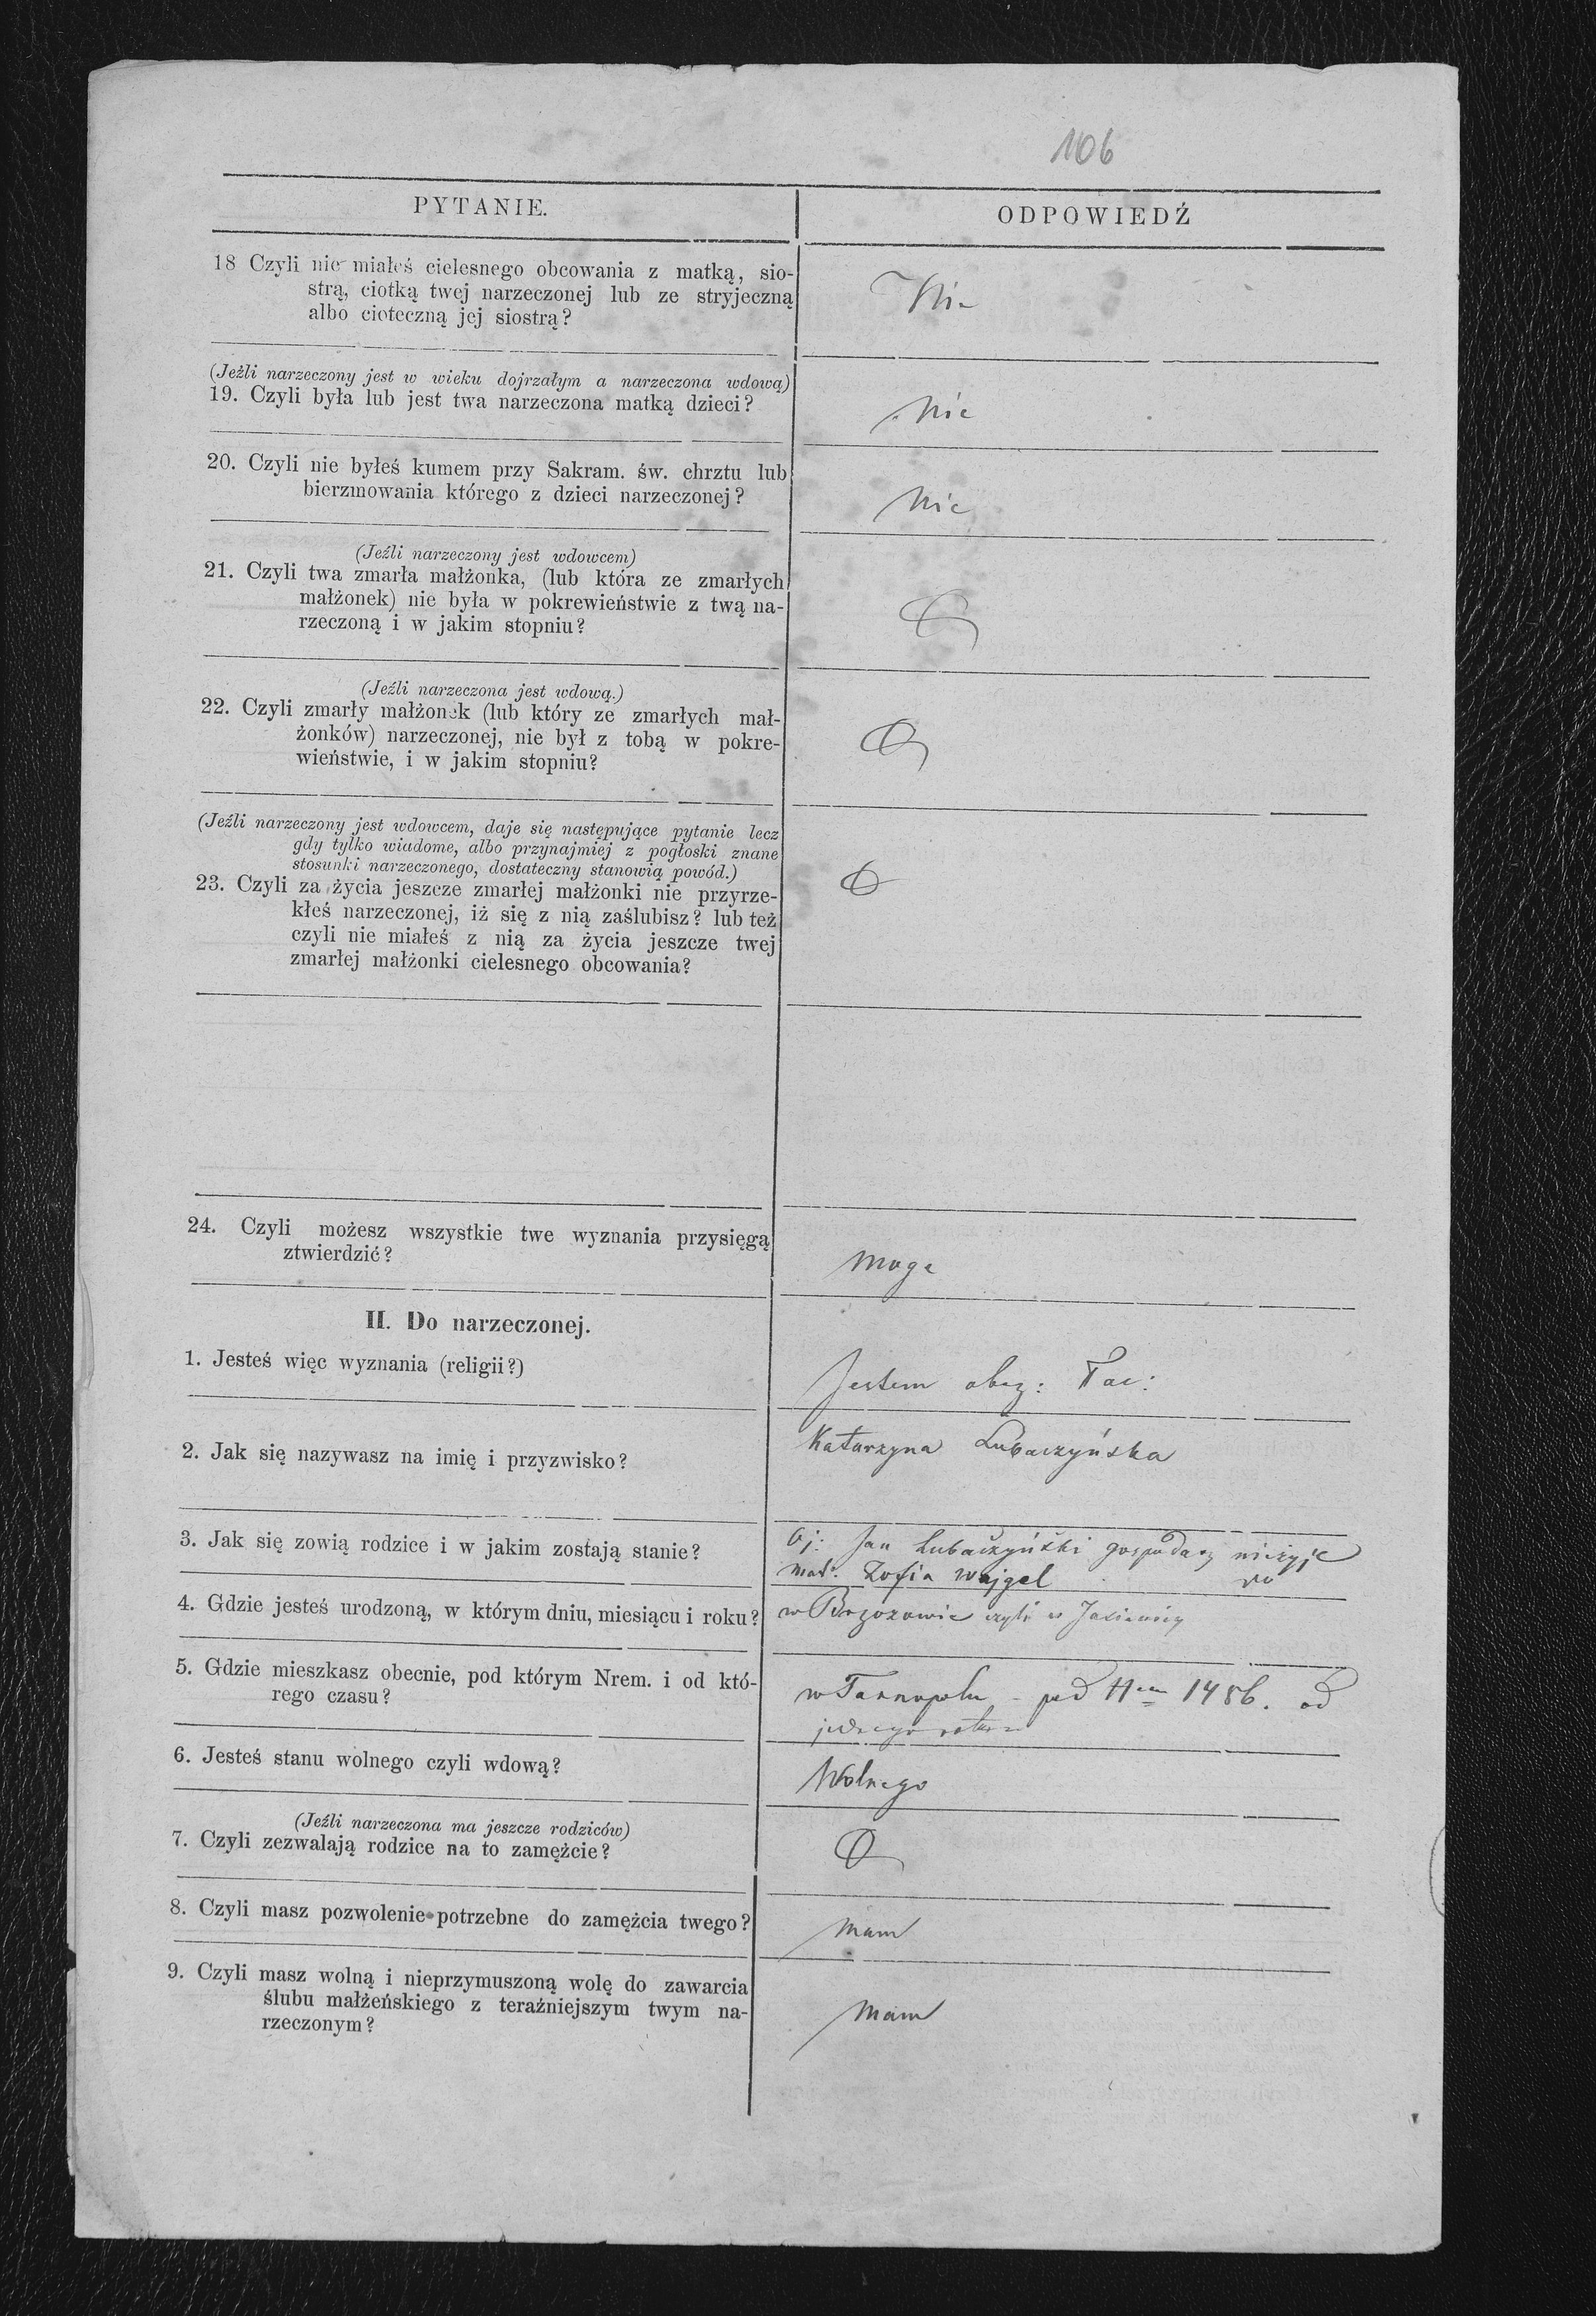 106
PYTANIE.
ODPOWIEDŹ
18 Czyli nie miałeś cielesnego obcowania z matką, sio-
strą, ciotką twej narzeczonej lub ze stryjeczną
albo cioteczną jej siostrą?
Nie
(Jeźli narzeczony jest w wieku dojrzałym a narzeczona wdową)
19. Czyli była lub jest twa narzeczona matką dzieci?
Nie
20. Czyli nie byłeś kumem przy Sakram. św. chrztu lub
bierzmowania którego z dzieci narzeczonej?
Nie
(Jeźli narzeczony jest wdowcem)
21. Czyli twa zmarła małżonka, (lub która ze zmarłych
małżonek) nie była w pokrewieństwie z twą na-
rzeczoną i w jakim stopniu?
(Jeźli narzeczona jest wdową.)
22. Czyli zmarły małżonek (lub który ze zmarłych mał-
żonków) narzeczonej, nie był z tobą w pokre-
wieństwie, i w jakim stopniu?
(Jeźli narzeczony jest wdowcem, daje się następujące pytanie lecz
gdy tylko wiadome, albo przynajmiej z pogłoski znane
stosunki narzeczonego, dostateczny stanowią powód.)
23. Czyli za życia jeszcze zmarłej małżonki nie przyrze-
kłeś narzeczonej, iż się z nią zaślubisz? lub też
czyli nie miałeś z nią za życia jeszcze twej
zmarłej małżonki cielesnego obcowania?
24. Czyli możesz wszystkie twe wyznania przysięgą
ztwierdzić?
Moge
II. Do narzeczonej.
1. Jesteś więc wyznania (religii?)
Jestem obrz: łac:
2. Jak się nazywasz na imię i przyzwisko?
Katarzyna Lubaczyńska
3. Jak się zowią rodzice i w jakim zostają stanie?
Oj: Jan Lubaczyński gospodarz nieżyje
Mat: Zofia Wajgel
4. Gdzie jesteś urodzoną, w którym dniu, miesiącu i roku?
w Brzozowie czyli w Jasienicy
5. Gdzie mieszkasz obecnie, pod którym Nrem. i od któ-
rego czasu?
w Tarnopolu - pod 1486. od
jednego
6. Jesteś stanu wolnego czyli wdową?
Wolnego
(Jeźli narzeczona ma jeszcze rodziców)
7. Czyli zezwalają rodzice na to zamężcie?
8. Czyli masz pozwolenie potrzebne do zamężcia twego?
Mam
9. Czyli masz wolną i nieprzymuszoną wolę do zawarcia
ślubu małżeńskiego z teraźniejszym twym na-
rzeczonym?
Mam